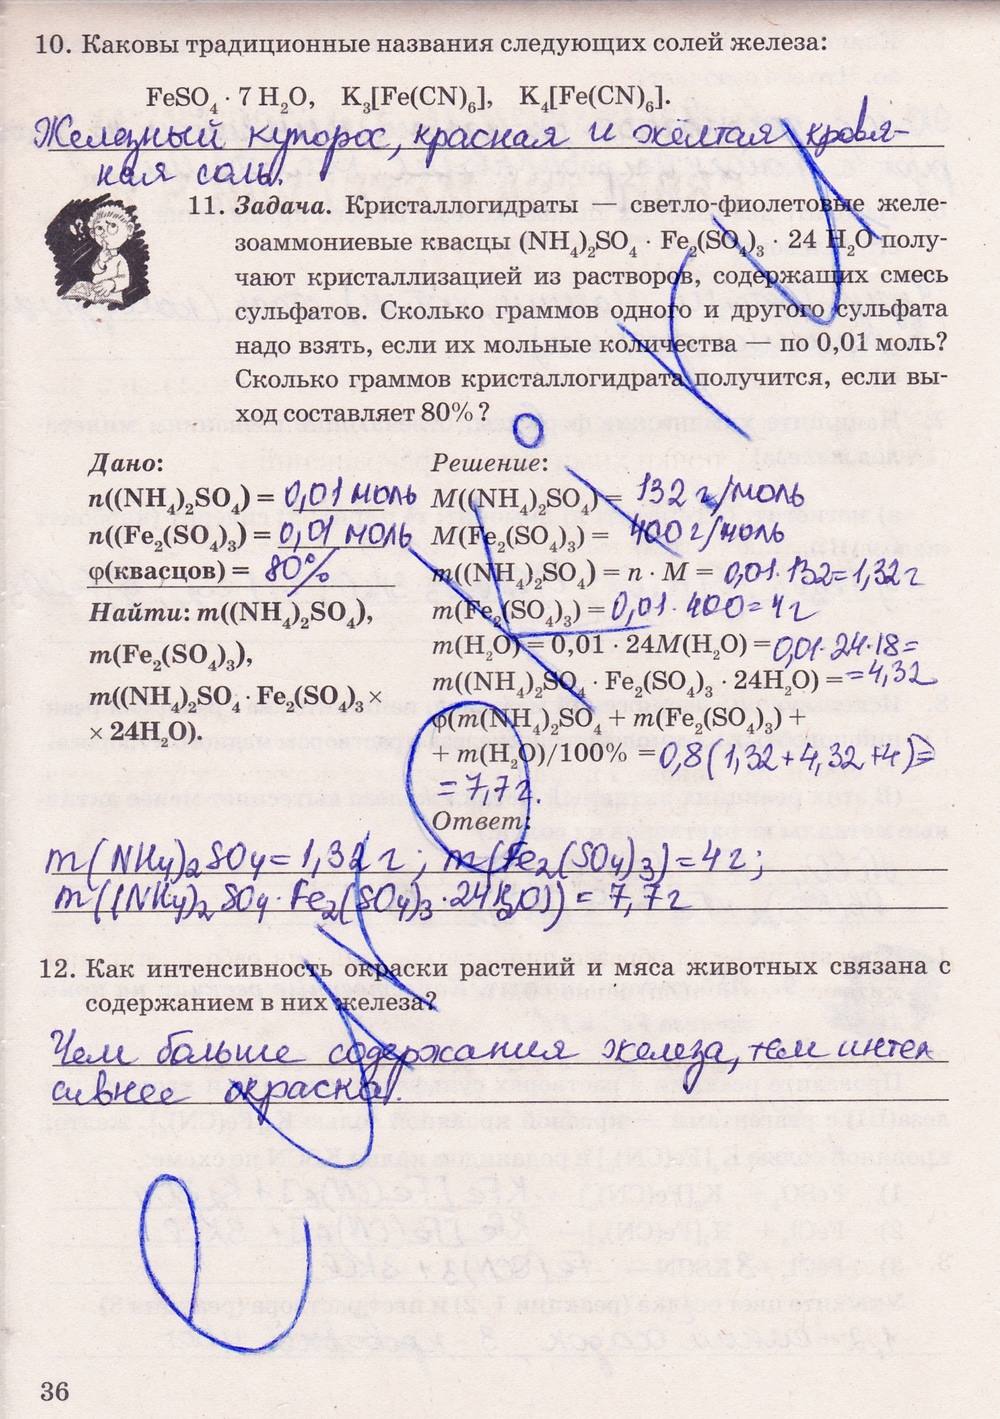 10. Каковы традиционные названия следующих солей железа:
FeSO₄ · 7 H₂O, K₃[Fe(CN)₆], K₄[Fe(CN)₆].
Железный купорос, красная и жёлтая кровя-
ная соль.
11. Задача. Кристаллогидраты — светло-фиолетовые желе-
зоаммониевые квасцы (NH₄)₂SO₄ · Fe₂(SO₄)₃ · 24 H₂O полу-
чают кристаллизацией из растворов, содержащих смесь
сульфатов. Сколько граммов одного и другого сульфата
надо взять, если их мольные количества — по 0,01 моль?
Сколько граммов кристаллогидрата получится, если вы-
ход составляет 80% ?
Дано:
n((NH₄)₂SO₄) = 0,01 моль
n((Fe₂(SO₄)₃) = 0,01 моль
φ(квасцов) = 80%
Найти: m((NH₄)₂SO₄),
m(Fe₂(SO₄)₃),
m((NH₄)₂SO₄ · Fe₂(SO₄)₃ ×
× 24H₂O).
Решение:
M((NH₄)₂SO₄) = 132 г/моль
M(Fe₂(SO₄)₃) = 400 г/моль
m((NH₄)₂SO₄) = n · M = 0,01·132=1,32 г
m(Fe₂(SO₄)₃) = 0,01 · 400=4 г
m(H₂O) = 0,01 · 24M(H₂O) = 0,01·24·18=
m((NH₄)₂SO₄ · Fe₂(SO₄)₃ · 24H₂O) = =4,32
φ(m(NH₄)₂SO₄ + m(Fe₂(SO₄)₃) +
+ m(H₂O)/100% = 0,8(1,32+4,32+4)=
= 7,7г.
Ответ:
m(NH₄)₂SO₄=1,32 г; m(Fe₂(SO₄)₃)=4г;
m((NH₄)₂SO₄·Fe₂(SO₄)₃·24H₂O))=7,7г
12. Как интенсивность окраски растений и мяса животных связана с
содержанием в них железа?
Чем больше содержания железа, тем интен
сивнее окраска.
36